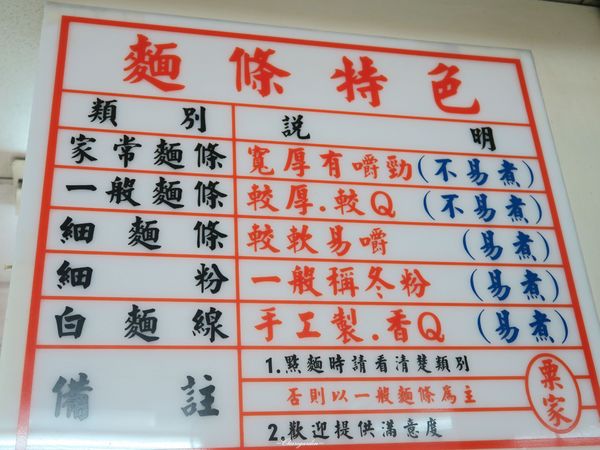 麵條特色
類別 說明
家常麵條 寬厚有嚼勁(不易煮)
一般麵條 較厚.較Q (不易煮)
細麵條 較軟易嚼 (易煮)
細粉 一般稱冬粉 (易煮)
白麵線 手工製.香Q (易煮)
備註
1.點麵時請看清楚類別
否則以一般麵條為主
2.歡迎提供滿意度
栗家